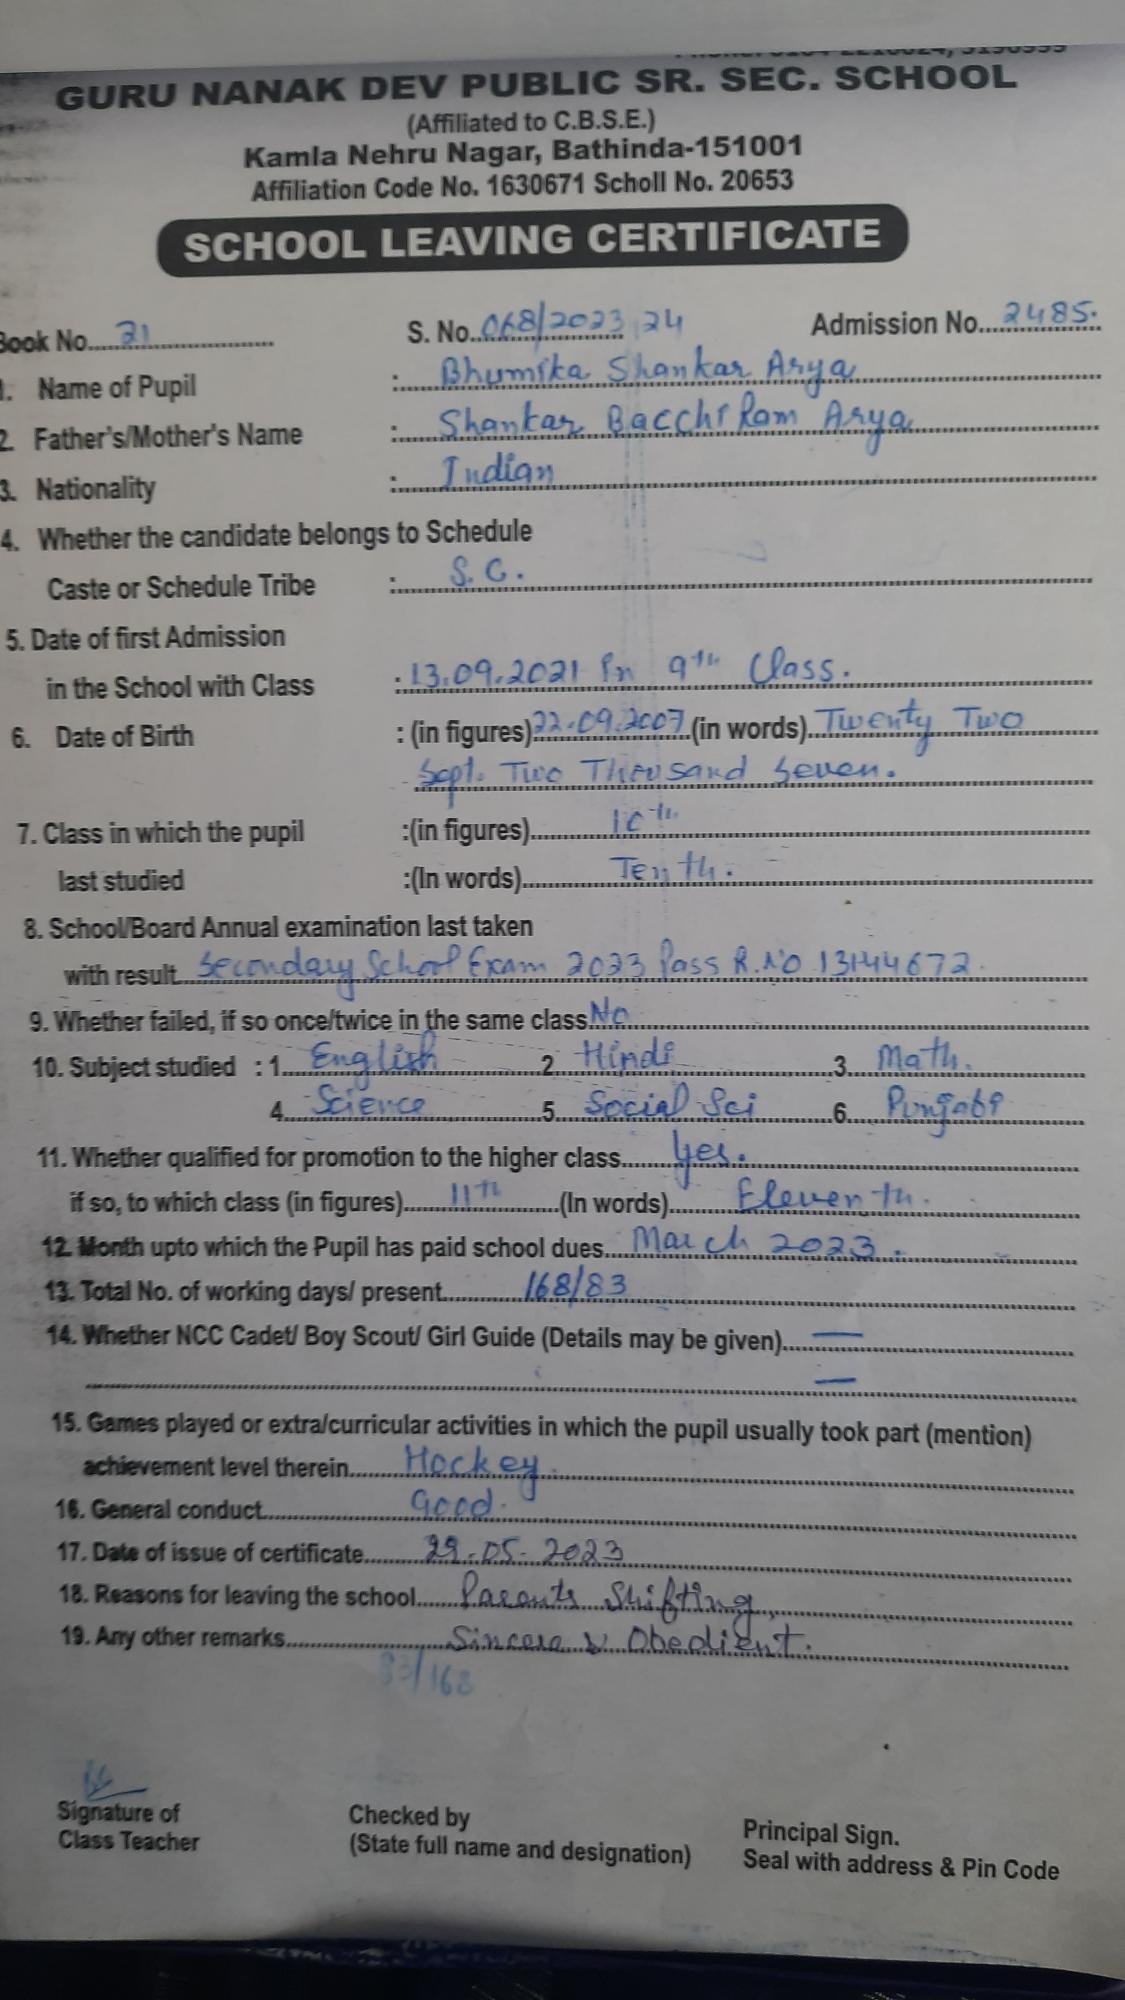 GURU NANAK DEV PUBLIC SR. SEC. SCHOOL
(Affiliated to C.B.S.E.)
Kamla Nehru Nagar, Bathinda-151001
Affiliation Code No. 1630671 Scholl No. 20653
SCHOOL LEAVING CERTIFICATE
Book No. 31 S. No. 068/2023 24 Admission No. 2485.
1. Name of Pupil : Bhumika Shankar Arya
2. Father's/Mother's Name : Shankar Bacchi Ram Arya
3. Nationality : Indian
4. Whether the candidate belongs to Schedule
Caste or Schedule Tribe : S.C.
5. Date of first Admission
in the School with Class : 13.09.2021 in 9th Class.
6. Date of Birth : (in figures) 22.09.2007 (in words) Twenty Two
Sept. Two Thousand Seven.
7. Class in which the pupil :(in figures) 10th
last studied :(In words) Tenth.
8. School/Board Annual examination last taken
with result Secondary School Exam 2023 Pass R.No 13144672.
9. Whether failed, if so once/twice in the same class No
10. Subject studied : 1. English 2. Hindi 3. Math.
4. Science 5. Social Sci 6. Punjabi
11. Whether qualified for promotion to the higher class Yes.
if so, to which class (in figures) 11th (In words) Eleventh.
12. Month upto which the Pupil has paid school dues March 2023.
13. Total No. of working days/ present 168/83
14. Whether NCC Cadet/ Boy Scout/ Girl Guide (Details may be given) —
—
15. Games played or extra/curricular activities in which the pupil usually took part (mention)
achievement level therein Hockey
16. General conduct Good.
17. Date of issue of certificate 29.05.2023
18. Reasons for leaving the school Parents Shifting
19. Any other remarks Sincere & Obedient.
83/168
Signature of Checked by Principal Sign.
Class Teacher (State full name and designation) Seal with address & Pin Code